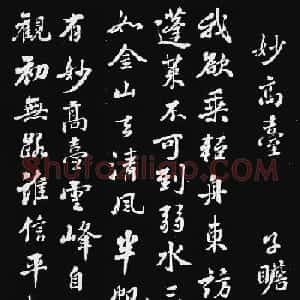 妙高臺 子瞻
我欲乘輕舟東訪
蓬萊不可到弱水三
如金山去清風半帆
有妙高臺雲峰自
觀初無路誰信平
Shufaziliao.com